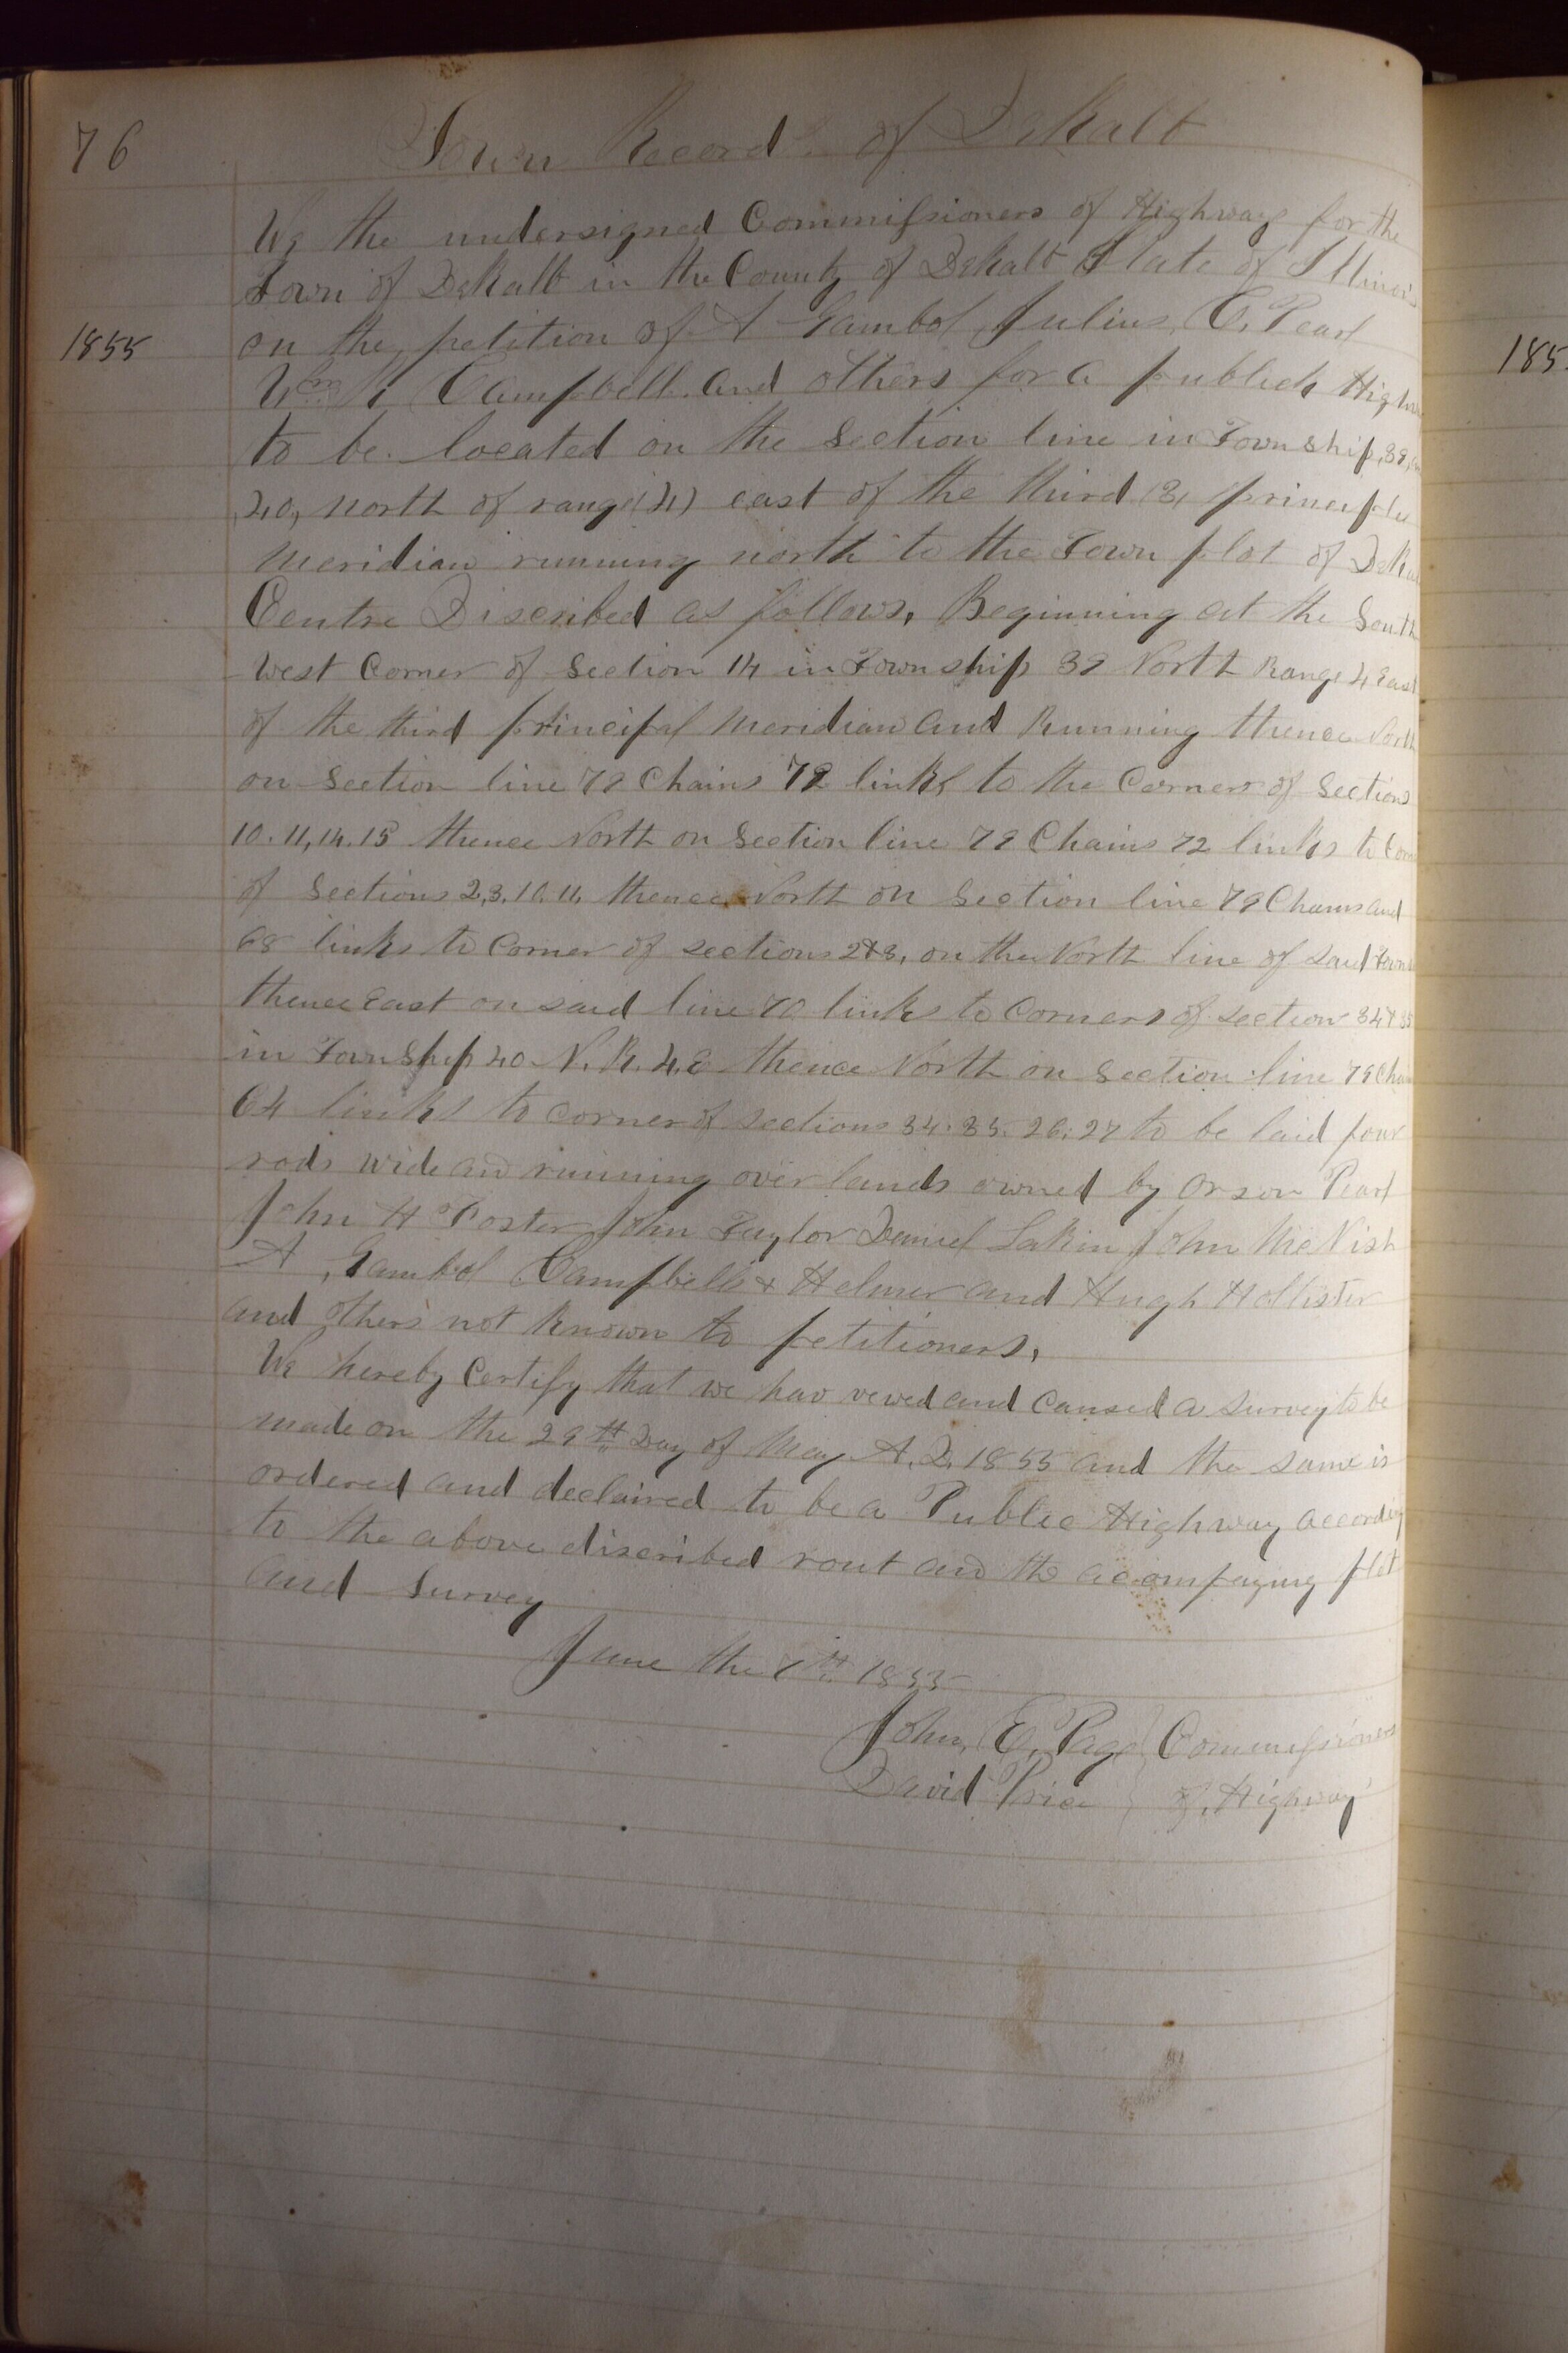 76
Town Record of DeKalb
We the undersigned Commissioners of Highways for the
Town of DeKalb in the County of DeKalb State of Illinois
1855
on the petition of A Gambol Julius C. Pearl
Wm Campbell and others for a publick High
to be located on the Section line in Township, 39,
40, north of range (4) east of the third (3) principle
Meridian running north to the Town plot of DeKa
Centre Discribed as follows, Beginning at the South
West Corner of Section 14 in Township 39 North Range 4 East
of the third principal Meridian and Running thence North
on Section line 79 Chains 72 links to the Corners of Sections
10. 11, 14. 15 thence North on Section line 79 Chains 72 links to Corn
of Sections 2, 3. 10. 11. thence North on Section line 79 Chains and
68 links to Corner of sections 2 & 3, on the North line of said Town
thence East on said line 70 links to Corners of section 34 & 35
in Township 40 N. R. 4. E thence North on Section line 79 Cha
64 links to Corner of sections 34. 35. 26. 27 to be laid four
rods wide and running over lands owned by Orson Pearl
John H Foster John Taylor Daniel Lakin John McNish
A, Gambol Campbells & Helmer and Hugh Hollister
and others not known to petitioners,
We hereby Certify that we hav vewed and Caused a survey to be
made on the 29th Day of May A. D. 1855 and the same is
ordered and declaired to be a Public Highway according
to the above discribed rout and the acompaying plot
and Survey
June the 7th 1855
John, E, Page Commissioners
David Price of, Highway
185